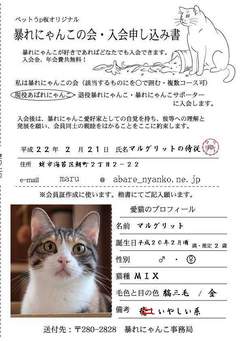 ペットうp板オリジナル
暴れにゃんこの会・入会申し込み書
暴れにゃんこが好きであればどなたでも入会できます。
入会金、年会費共無料!
私は暴れにゃんこの会(該当するものに○で囲む・複数コース可)
現役あばれにゃんこ・退役暴れにゃんこ・暴れにゃんこサポーター
に入会します。
入会後は、暴れにゃんこ愛好家としての自覚を持ち、彼等への理解と
発展を願い、会員同士の親睦をはかることをここに約束します。
平成22年2月21日 氏名マルグリットの侍従
住所 蛙市海苔三瓶町2丁目2-22
e-mail maru @ abare_nyanko.ne.jp
※会員証作成に使います。楷書にてご記入願います。
愛猫のプロフィール
名前 マルグリット
誕生日 平成20年2月頃 満・推定2歳
性別 ♂・♀
猫種 MIX
毛色と目の色 縞三毛 / 金
備考 いやしい系
送付先:〒280-2828 暴れにゃんこ事務局